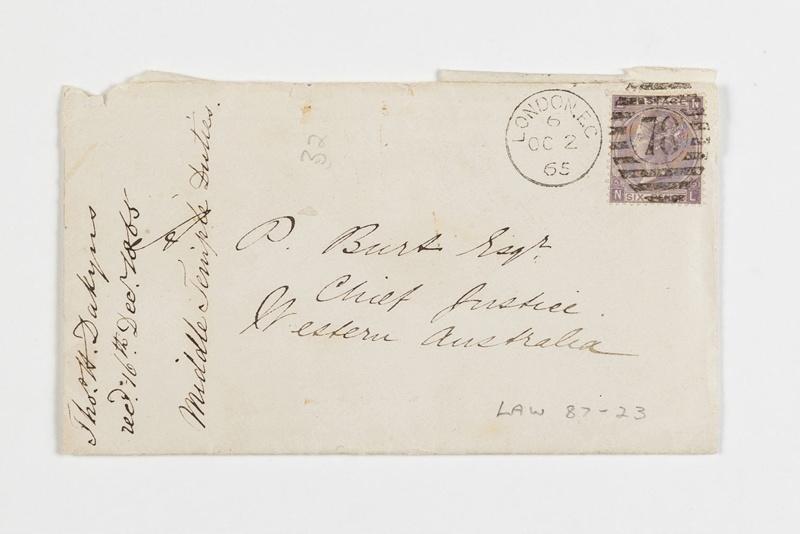 Thos. H. Dakyns
recd. 16th Decr. 1865
Middle Temple Duties.
32
LONDON.E.C
6
OC 2
65
78
N SIX PENCE L
A. P. Burt Esqr.
Chief Justice
Western Australia
LAW 87-23